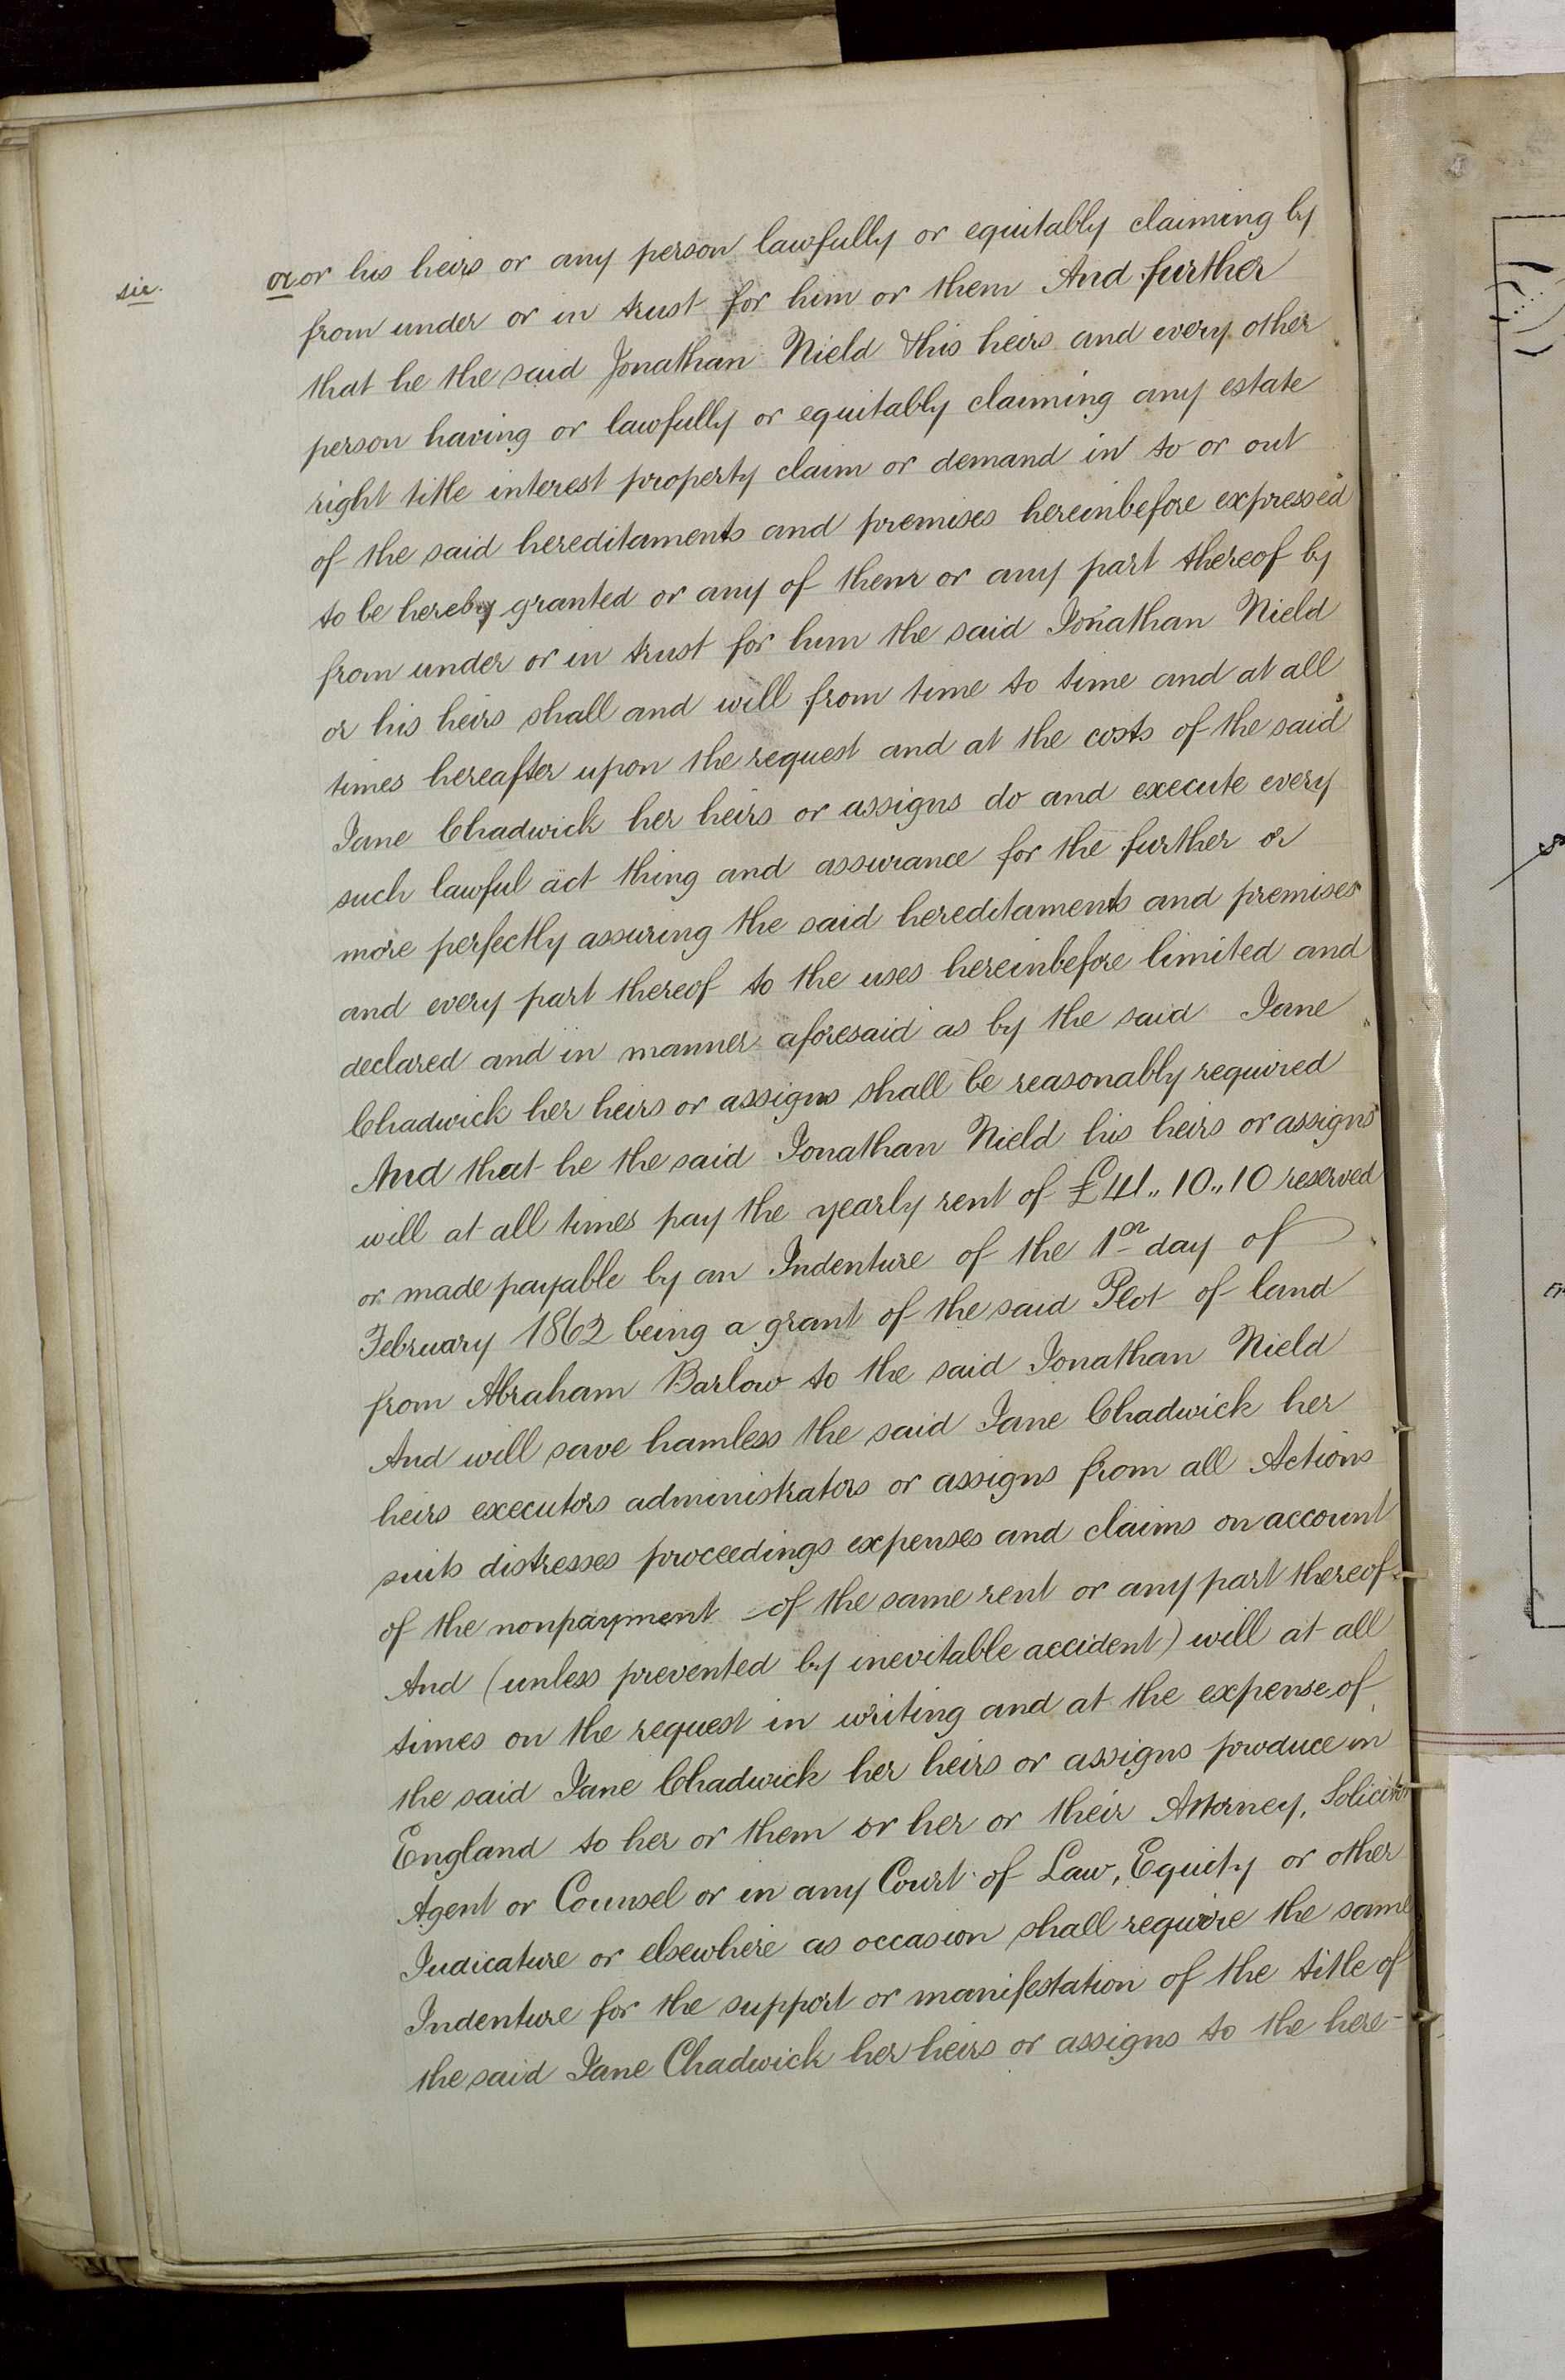 sic.
or or his heirs or any person lawfully or equitably claiming by
from under or in trust for him or them And further
that he the said Jonathan Nield & his heirs and every other
person having or lawfully or equitably claiming any estate
right title interest property claim or demand in to or out
of the said hereditaments and premises hereinbefore expressed
to be hereby granted or any of them or any part thereof by
from under or in trust for him the said Jonathan Nield
or his heirs shall and will from time to time and at all
times hereafter upon the request and at the costs of the said
Jane Chadwick her heirs or assigns do and execute every
such lawful act thing and assurance for the further or
more perfectly assuring the said hereditaments and premises
and every part thereof to the uses hereinbefore limited and
declared and in manner aforesaid as by the said Jane
Chadwick her heirs or assigns shall be reasonably required
And that he the said Jonathan Nield his heirs or assigns
will at all times pay the yearly rent of £41,, 10,, 10 reserved
or made payable by an Indenture of the 1st day of
February 1862 being a grant of the said Plot of land
from Abraham Barlow to the said Jonathan Nield
And will save hamless the said Jane Chadwick her
heirs executors administrators or assigns from all Actions
suits distresses proceedings expenses and claims on account
of the nonpayment of the same rent or any part thereof
And (unless prevented by inevitable accident) will at all
times on the request in writing and at the expense of
the said Jane Chadwick her heirs or assigns produce in
England to her or them or her or their Attorney, Solicitor
Agent or Counsel or in any Court of Law, Equity or other
Judicature or elsewhere as occasion shall require the same
Indenture for the support or manifestation of the title of
the said Jane Chadwick her heirs or assigns to the here-